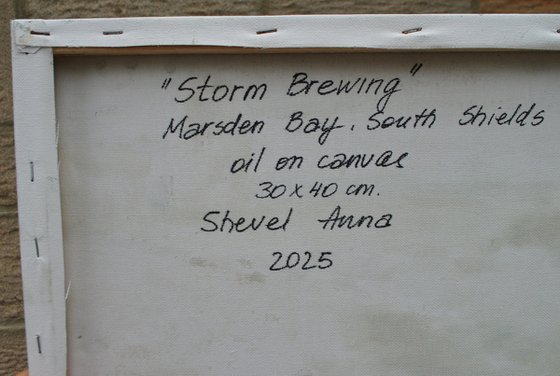 "Storm Brewing"
Marsden Bay. South Shields
oil on canvas
30 x 40 cm.
Shevel Anna
2025